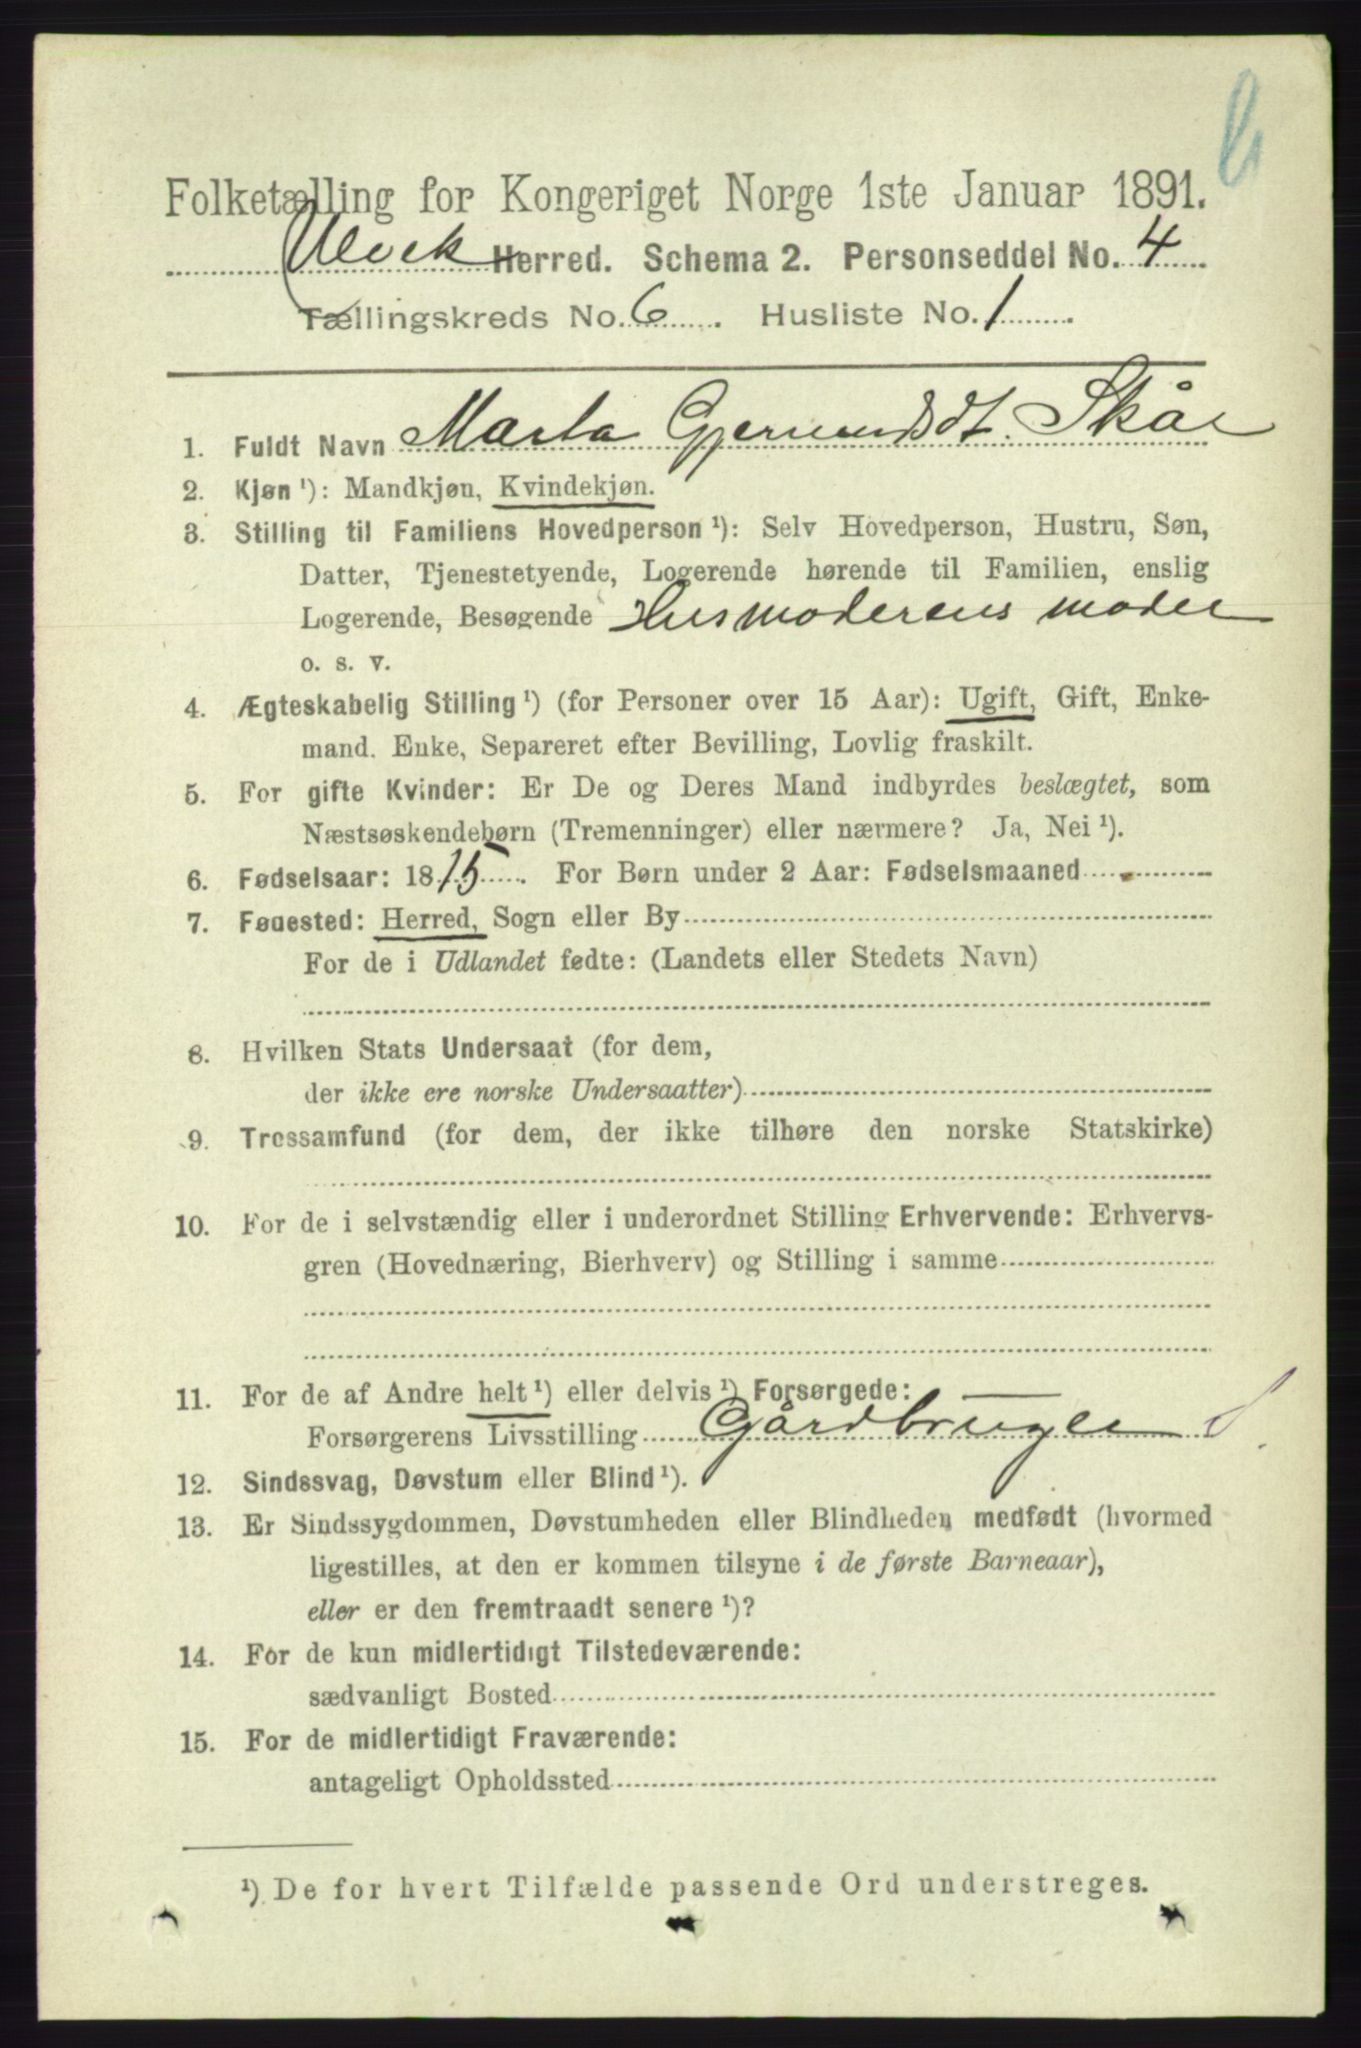 Folketælling for Kongeriget Norge 1ste Januar 1891.
Ulvik Herred. Schema 2. Personseddel No. 4
Tællingskreds No. 6. Husliste No. 1.
1. Fuldt Navn Marta Gjermundsdt. Skår
2. Kjøn ¹): Mandkjøn, Kvindekjøn.
3. Stilling til Familiens Hovedperson ¹): Selv Hovedperson, Hustru, Søn,
Datter, Tjenestetyende, Logerende hørende til Familien, enslig
Logerende, Besøgende Husmoderens moder
o. s. v.
4. Ægteskabelig Stilling ¹) (for Personer over 15 Aar): Ugift, Gift, Enke-
mand. Enke, Separeret efter Bevilling, Lovlig fraskilt.
5. For gifte Kvinder: Er De og Deres Mand indbyrdes beslægtet, som
Næstsøskendebørn (Tremenninger) eller nærmere? Ja, Nei ¹).
6. Fødselsaar: 1815. For Børn under 2 Aar: Fødselsmaaned
7. Fødested: Herred, Sogn eller By
For de i Udlandet fødte: (Landets eller Stedets Navn)
8. Hvilken Stats Undersaat (for dem,
der ikke ere norske Undersaatter)
9. Trossamfund (for dem, der ikke tilhøre den norske Statskirke)
10. For de i selvstændig eller i underordnet Stilling Erhvervende: Erhvervs-
gren (Hovednæring, Bierhverv) og Stilling i samme
11. For de af Andre helt ¹) eller delvis ¹) Forsørgede:
Forsørgerens Livsstilling Gårdbruger
12. Sindssvag, Døvstum eller Blind ¹).
13. Er Sindssygdommen, Døvstumheden eller Blindheden medfødt (hvormed
ligestilles, at den er kommen tilsyne i de første Barneaar),
eller er den fremtraadt senere ¹)?
14. For de kun midlertidigt Tilstedeværende:
sædvanligt Bosted
15. For de midlertidigt Fraværende:
antageligt Opholdssted
¹) De for hvert Tilfælde passende Ord understreges.